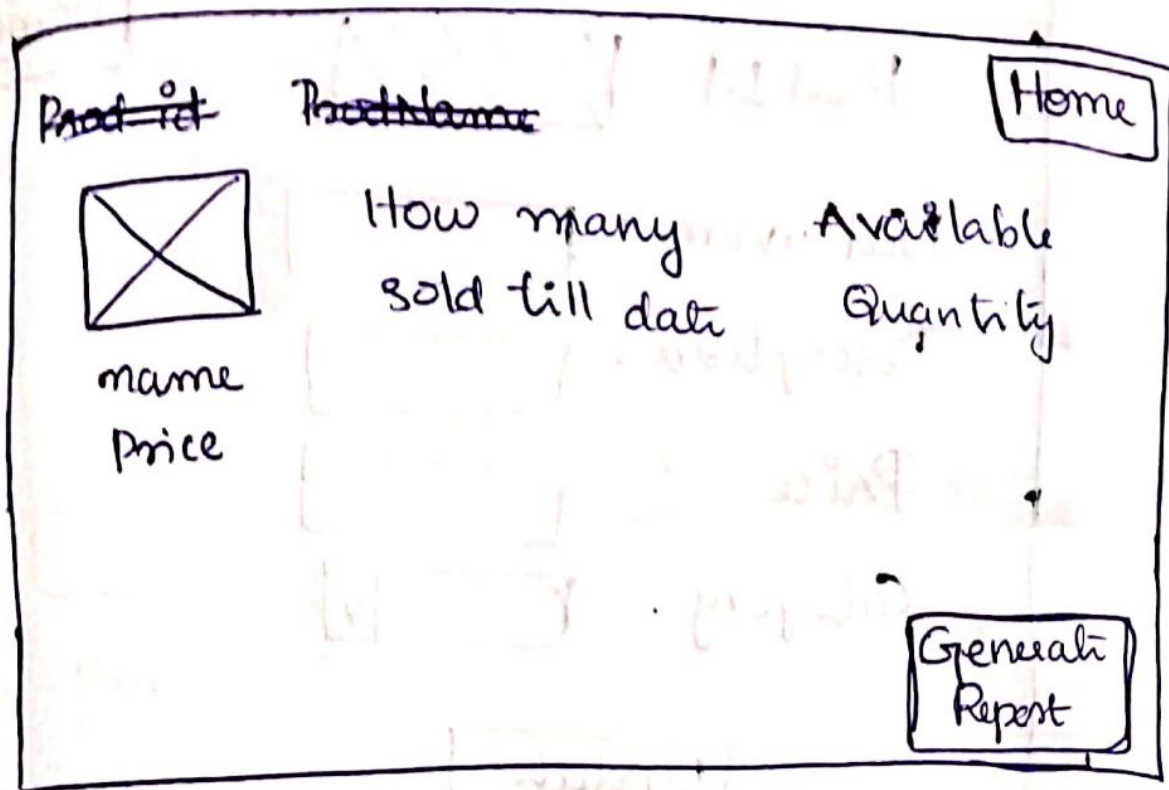 Prod-id ProdName
Home
How many
sold till date
Available
Quantity
name
Price
Generate
Report